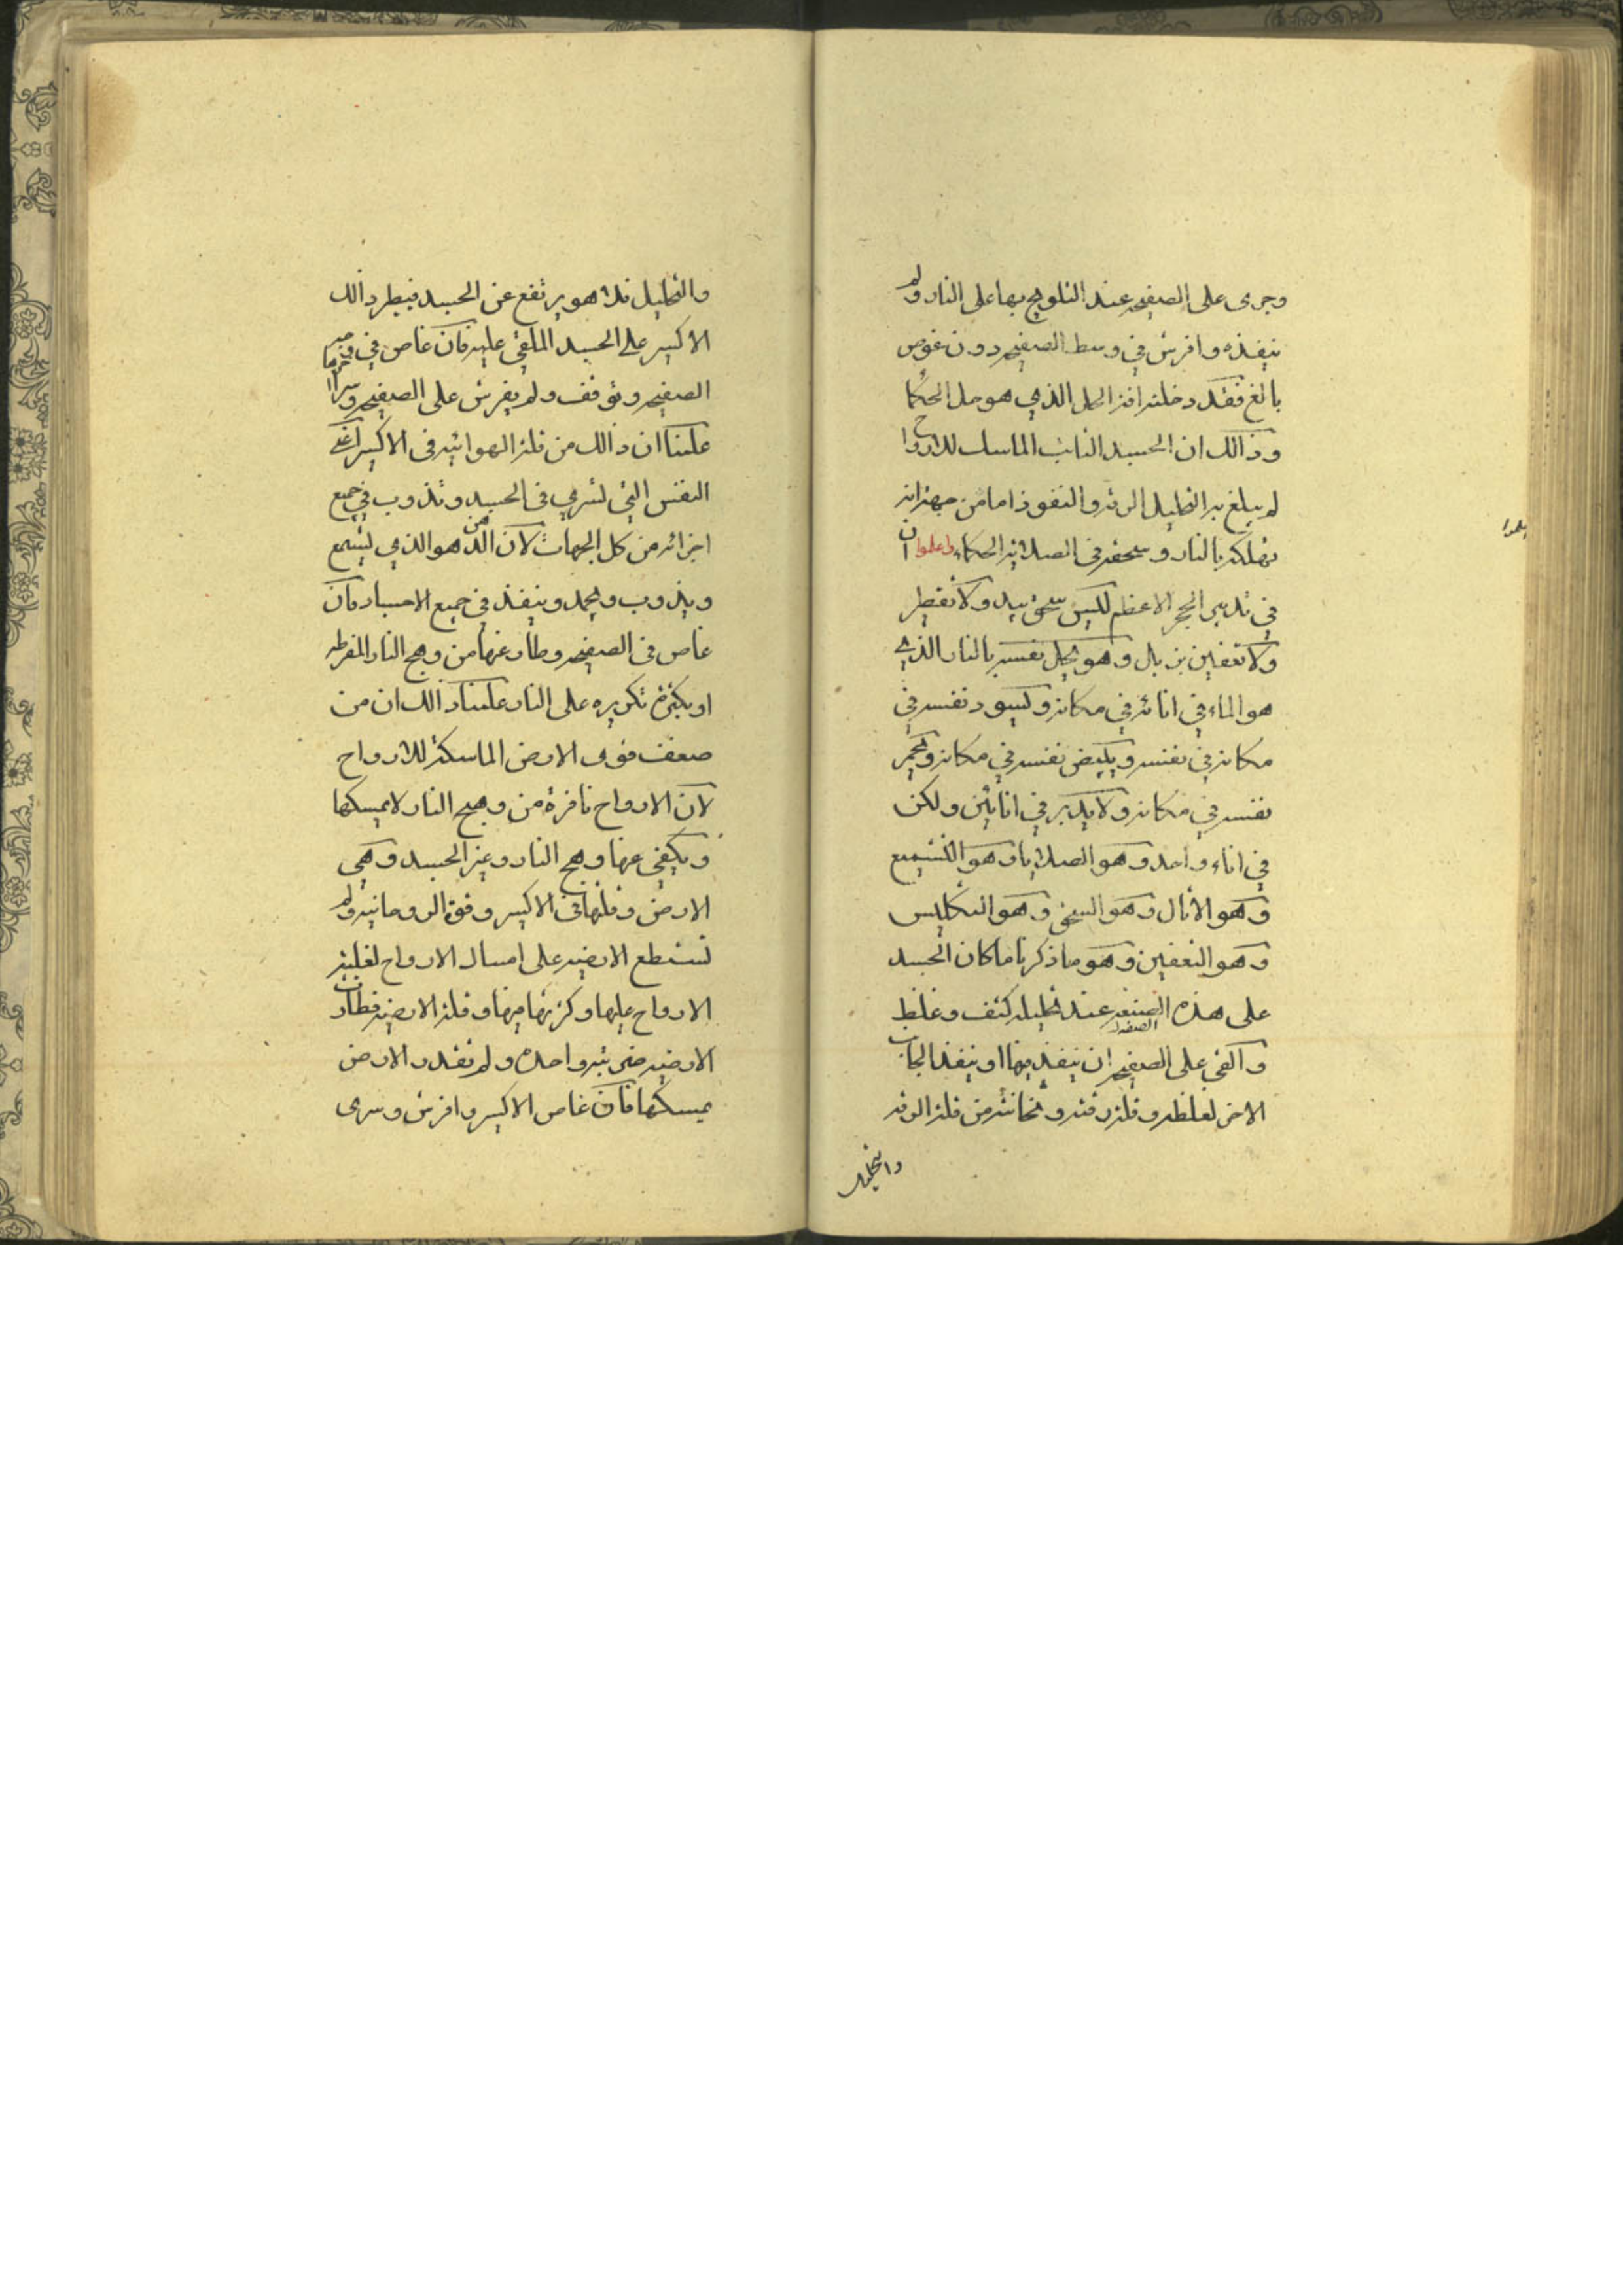 وجرى على الصفيحه عند التلويح بها على النار ولم
ينفذه وافرش في وسط الصفيحه دون غوص
بالغ فقد دخلته افة الحل الذي هو حل الحكما
وذالك ان الجسد الثابت الماسك للارواح
لم يبلغ به التحليل الرقه والنفوذ اما من جهة انه
تهلكه بالنار وسحقه في الصلاية الحكماء واعلموا ان
في تدبير الحجر الاعظم لليس سحق بيد ولا تقطير
ولا تعفين بزبال وهو يحل نفسه بالنار الذي
هو الماء في انائه في مكانه ويسود نفسه في
مكانه في نفسه ويبيض نفسه في مكانه ويحمر
نفسه في مكانه ولا يدبر في انائين ولكن
في اناء واحد وهو الصلايا وهو التشميع
وهو الاثال وهو السحق وهو التكليس
وهو التعفين وهو ما ذكرنا ما كان الجسد
على هذه الصنعه عند تحليله كثف وغلظ
الصفة
والقي على الصفيحه ان ينفذ فيها او ينفذ الجانب
الاخر لغلظه وقلة رقته وثخانته من قلة الرقه
والتحليل
والتحليل فلا هو يرتفع عن الجسد فيطرد الك
الاكسير على الجسد الملقى عليه فان غاص في
الصفيحه وتوقف ولم يفرش على الصفيحه وسرا
علمنا ان ذالك من قلة الهوائيه في الاكسير اعني
النفس التي تسري في الجسد وتذوب في جميع
اجزائه من كل الجهات لان الدهن هو الذي يشمع
ويذوب ويجمد وينفذ في جميع الاجساد فان
غاص في الصفيحه وطار عنها من وهج النار المفرطه
او بكثرة تكريره على النار علمنا ذالك ان من
ضعف قوى الارض الماسكة للارواح
لان الارواح نافرة من وهج النار لا يمسكها
ويكفي عنها وهج النار وغير الجسد وهي
الارض وقلتها في الاكسير وقوة الروحانيه ولم
تستطع الارضيه على امساك الارواح لغلبة
الارواح عليها وكثرتها فيها وقلة الارضيه فطارت
الارضيه ضربة واحده ولم تقدر الارض
يمسكها فان غاص الاكسير وافرش وسرى